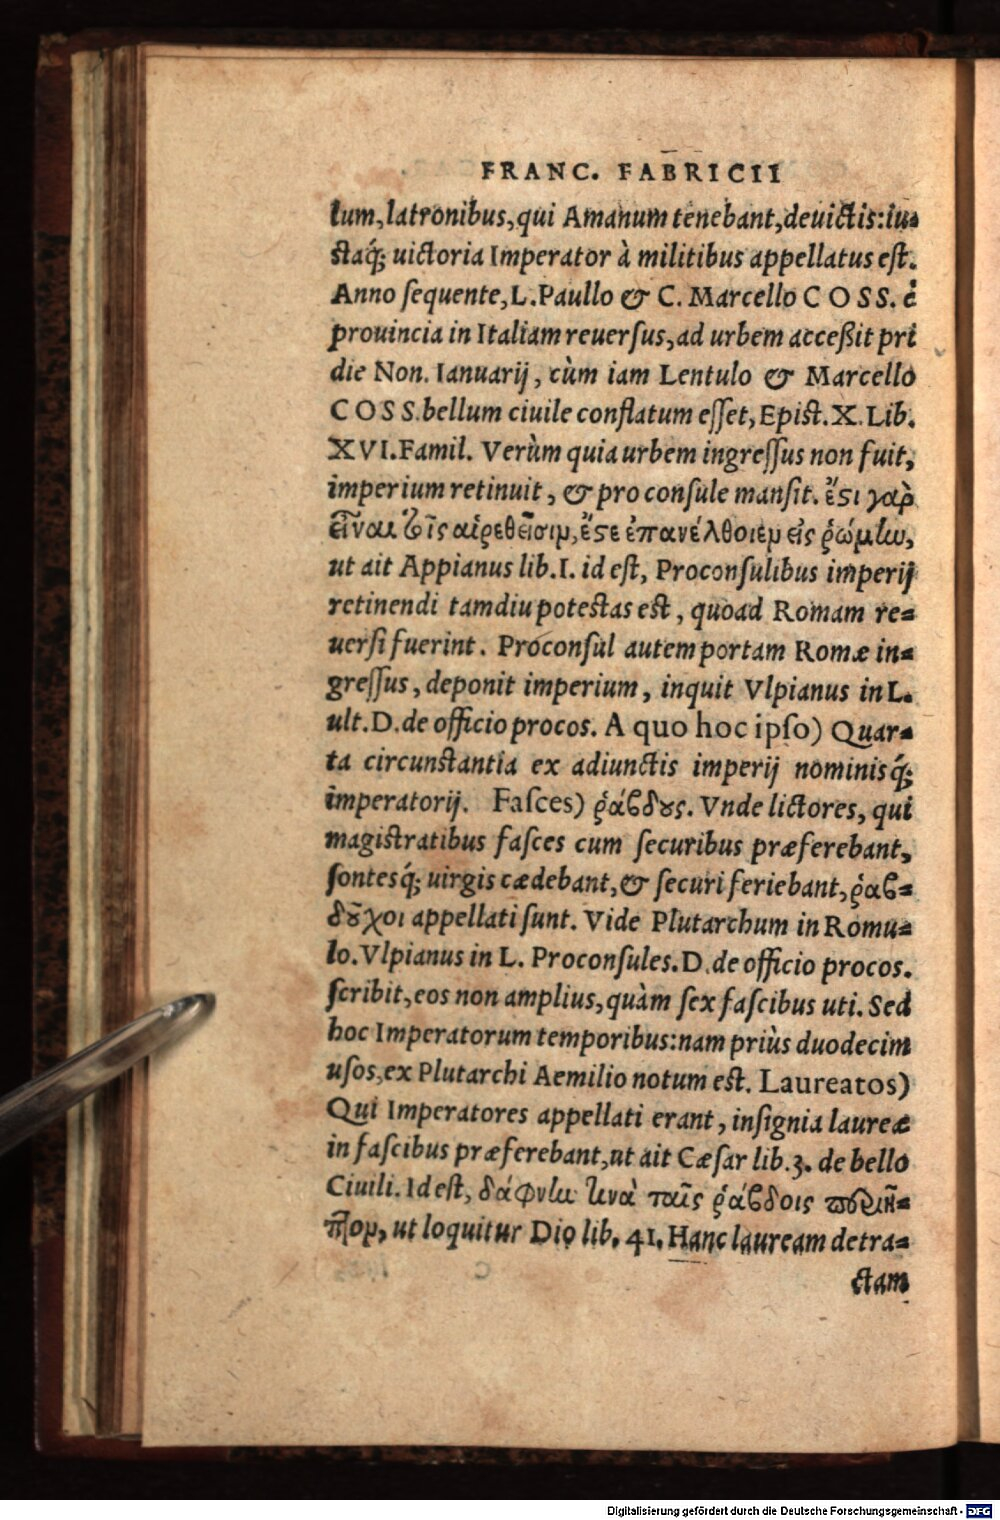 FRANC. FABRICII
tum, latronibus, qui Amanum tenebant, deuictis: iu-
staq́; uictoria Imperator à militibus appellatus est.
Anno sequente, L. Paullo & C. Marcello COSS. è
prouincia in Italiam reuersus, ad urbem acceßit pri
die Non. Ianuarij, cùm iam Lentulo & Marcello
COSS. bellum ciuile conflatum esset, Epist. X. Lib.
XVI. Famil. Verùm quia urbem ingressus non fuit,
imperium retinuit, & pro consule mansit. ἔστι γὰρ
εἶναι τοῖς αἱρεθεῖσιν, ἔστε ἐπανέλθοιεν εἰς ῥώμην,
ut ait Appianus lib. I. id est, Proconsulibus imperij
retinendi tamdiu potestas est, quoad Romam re-
uersi fuerint. Proconsul autem portam Romæ in-
gressus, deponit imperium, inquit Vlpianus in L.
ult. D. de officio procos. A quo hoc ipso) Quar-
ta circunstantia ex adiunctis imperij nominisq́;
imperatorij. Fasces) ῥάβδους. Vnde lictores, qui
magistratibus fasces cum securibus præferebant,
sontesq́; uirgis cædebant, & securi feriebant, ῥαβ-
δοῦχοι appellati sunt. Vide Plutarchum in Romu-
lo. Vlpianus in L. Proconsules. D. de officio procos.
scribit, eos non amplius, quàm sex fascibus uti. Sed
hoc Imperatorum temporibus: nam priùs duodecim
usos, ex Plutarchi Aemilio notum est. Laureatos)
Qui Imperatores appellati erant, insignia laureæ
in fascibus præferebant, ut ait Cæsar lib. 3. de bello
Ciuili. Id est, δάφνην τινὰ ταῖς ῥάβδοις
ut loquitur Dio lib. 41. Hanc lauream detra-
ctam
Digitalisierung gefördert durch die Deutsche Forschungsgemeinschaft - DFG